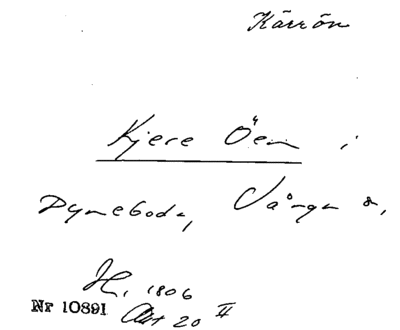 Kärrön
Kjere Öen i
Dyneboda, Vånga s,
H, 1806
Nr 10891 Akt 20 II